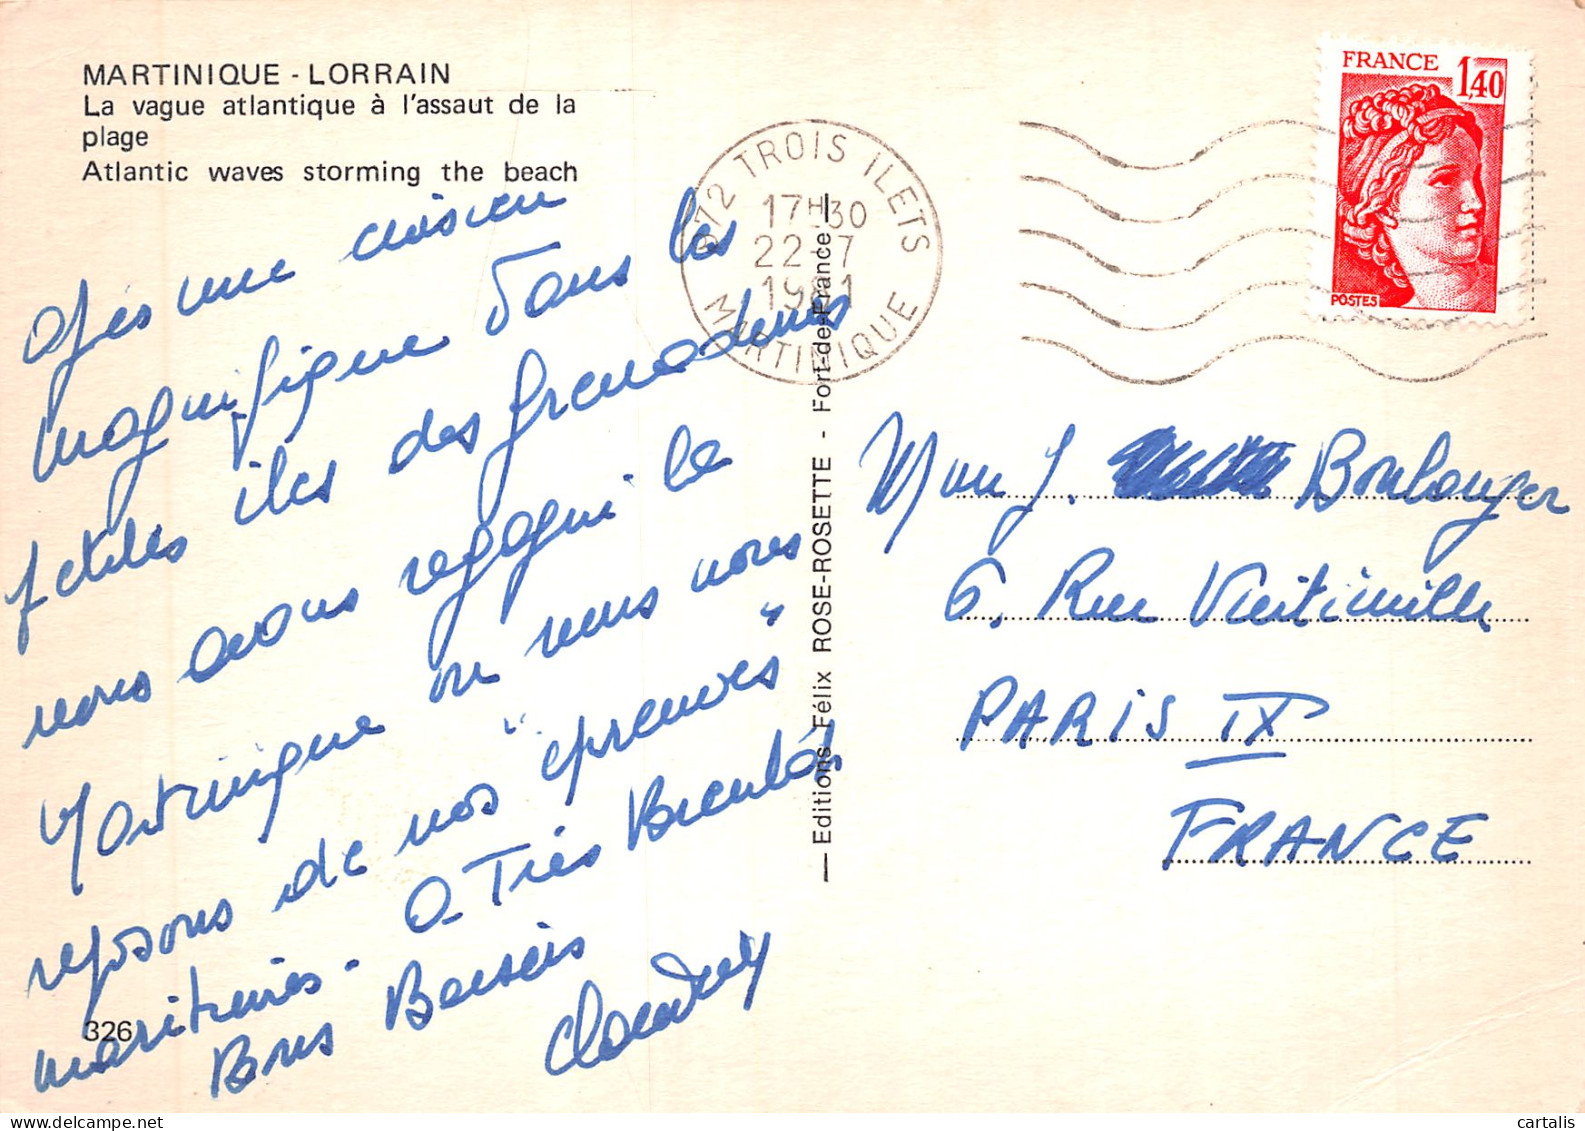 MARTINIQUE - LORRAIN
La vague atlantique à l'assaut de la
plage
Atlantic waves storming the beach
972 TROIS ILETS
17H30
22-7
1981
MARTINIQUE
FRANCE
1,40
POSTES
après une croisière
magnifique dans les
petites îles des Grenadines
nous avons regagné la
Martinique où nous nous
reposons de nos "épreuves"
maritimes - A Très Bientôt
Bons Baisers
Editions Félix ROSE-ROSETTE - Fort-de-France
J. Boulanger
6, Rue Vintimille
PARIS IX
FRANCE
326
cartalis